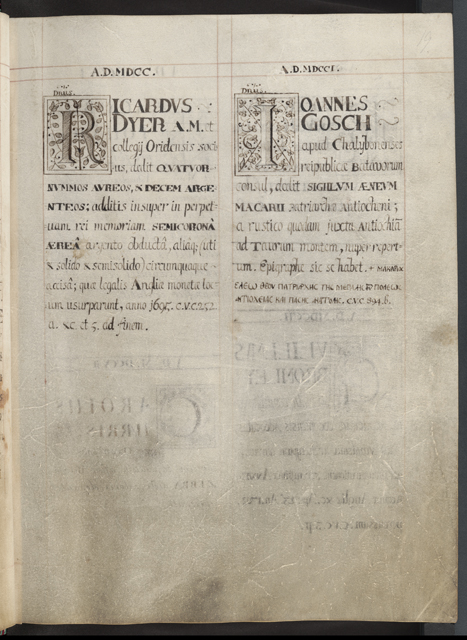 A.D. MDCC.
RICARDVS
DYER A.M. et
collegij Oriclensis soci-
us, dedit QVATVOR
NVMMOS AVREOS, & DECEM ARGE
NTEOS; additis insuper in perpet-
uam rei memoriam SEMICORONÂ
ÆREÂ argento obductâ, aliâq; (uti
& solido & semisolido) circumquaque
accisâ; quæ legalis Angliæ monetæ loc-
um usurparunt, anno 1695. C.V.C. 252.
a. &c. et 5. ad finem.
A.D. MDCCI.
IOANNES
GOSCH
apud Chalybonenses
reipublicæ Batavorum
consul, dedit SIGILVM ÆNEVM
MACARII patriarchæ Antiocheni;
a rustico quodam juxta Antiochiã
ad Taurum montem, nuper repert-
um. Epigraphe sic se habet. + ΜΑΚΑΡΙΟC
ΕΛΕΩ ΘΕΟΥ ΠΑΤΡΙΑΡΧΗC ΤΗC ΜΕΓΑΛΗC
ΚΑΙ ΠΑCΗC C.V.C. 394. 6.